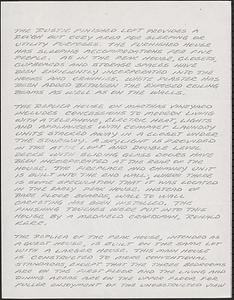 THE RUSTIC FINISHED LOFT PROVIDES A
ROUGH BUT COZY AREA FOR SLEEPING OR
UTILITY PURPOSES. THE FURNISHED HOUSE
HAS SLEEPING ACCOMMODATIONS FOR FIVE
PEOPLE. AS IN THE PEAK HOUSE, CLOSETS,
CUPBOARDS AND STORAGE SPACES HAVE
BEEN EFFICIENTLY INCORPORATED INTO THE
NOOKS AND CRANNIES. WHITE PLASTER HAS
BEEN ADDED BETWEEN THE EXPOSED CEILING
BEAMS AS WELL AS ON THE WALLS.
THE REPLICA HOUSE ON MARTHAS VINEYARD
INCLUDES CONCESSIONS TO MODERN LIVING
WITH A TELEPHONE, ELECTRIC HEAT, LIGHTS
AND APPLIANCES WITH COMPACT LAUNDRY
UNITS STACKED AWAY IN A CLOSET UNDER
THE STAIRWAY. A SKYLIGHT IS PROVIDED
IN THE ATTIC LOFT AND DOUBLE LEVEL
DECKS WITH SLIDING GLASS DOORS HAVE
BEEN INCORPORATED AT THE REAR OF THE
HOUSE. THE FIREPLACE AND CHIMNEY UNIT
IS BUILT INTO THE END WALL, WHERE THERE
IS SOME SPECULATION THAT IT WAS LOCATED
IN THE EARLY PEAK HOUSE. INSTEAD OF
BARE PLANK FLOORS, WALL TO WALL
CARPETING HAS BEEN INSTALLED. THE
FINISHING TOUCHES WERE PUT INTO THIS
HOUSE BY A MEDFIELD CRAFTSMAN, RONALD
THE REPLICA OF THE PEAK HOUSE, INTENDED AS
A GUEST HOUSE, IS BUILT ON THE SAME LOT
WITH A LARGER HOUSE. THIS MAIN HOUSE
IS CONSTRUCTED TO MORE CONVENTIONAL
STANDARDS, EXCEPT THAT THE THREE BEDROOMS
ARE ON THE FIRST FLOOR AND THE LIVING AND
DINING AREAS ARE ON THE UPPER FLOOR FOR
FULLER ENJOYMENT OF THE UNOBSTRUCTED VIEW